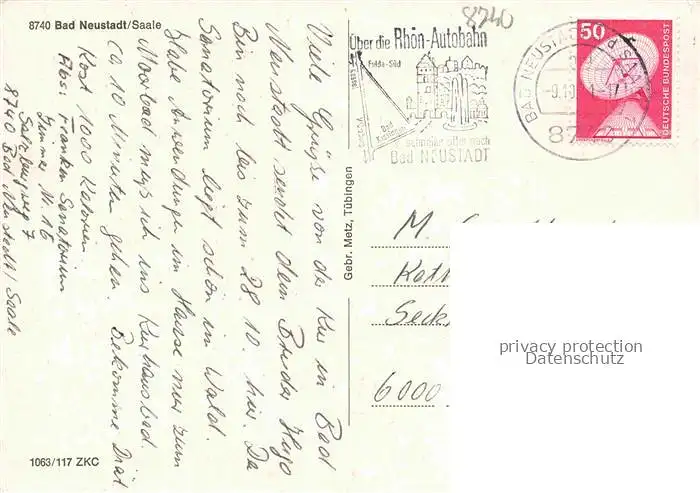 8740 Bad Neustadt/Saale
Viele Grüße von der Kur in Bad
Neustadt sendet dein Bruder Hugo
Bin noch bis zum 28. 10. hier. Das
Sanatorium liegt schön im Wald.
Habe Anwendungen im Hause nur zum
Moorbad muß ich ins Kurhausbad.
ca 10 Minuten gehen. Bekomme Diät
Kost 1000 Kalorien.
Abs: Franken Sanatorium
Zimmer Nr 16
Salzburgweg 7
8740 Bad Neustadt/Saale
1063/117 ZKC
Gebr. Metz, Tübingen
8740
Über die Rhön-Autobahn
Fulda-Süd
Bad
schneller oder nach
Bad NEUSTADT
BAD NEUSTADT
50
DEUTSCHE BUNDESPOST
M
Seck
6000
privacy protection
Datenschutz